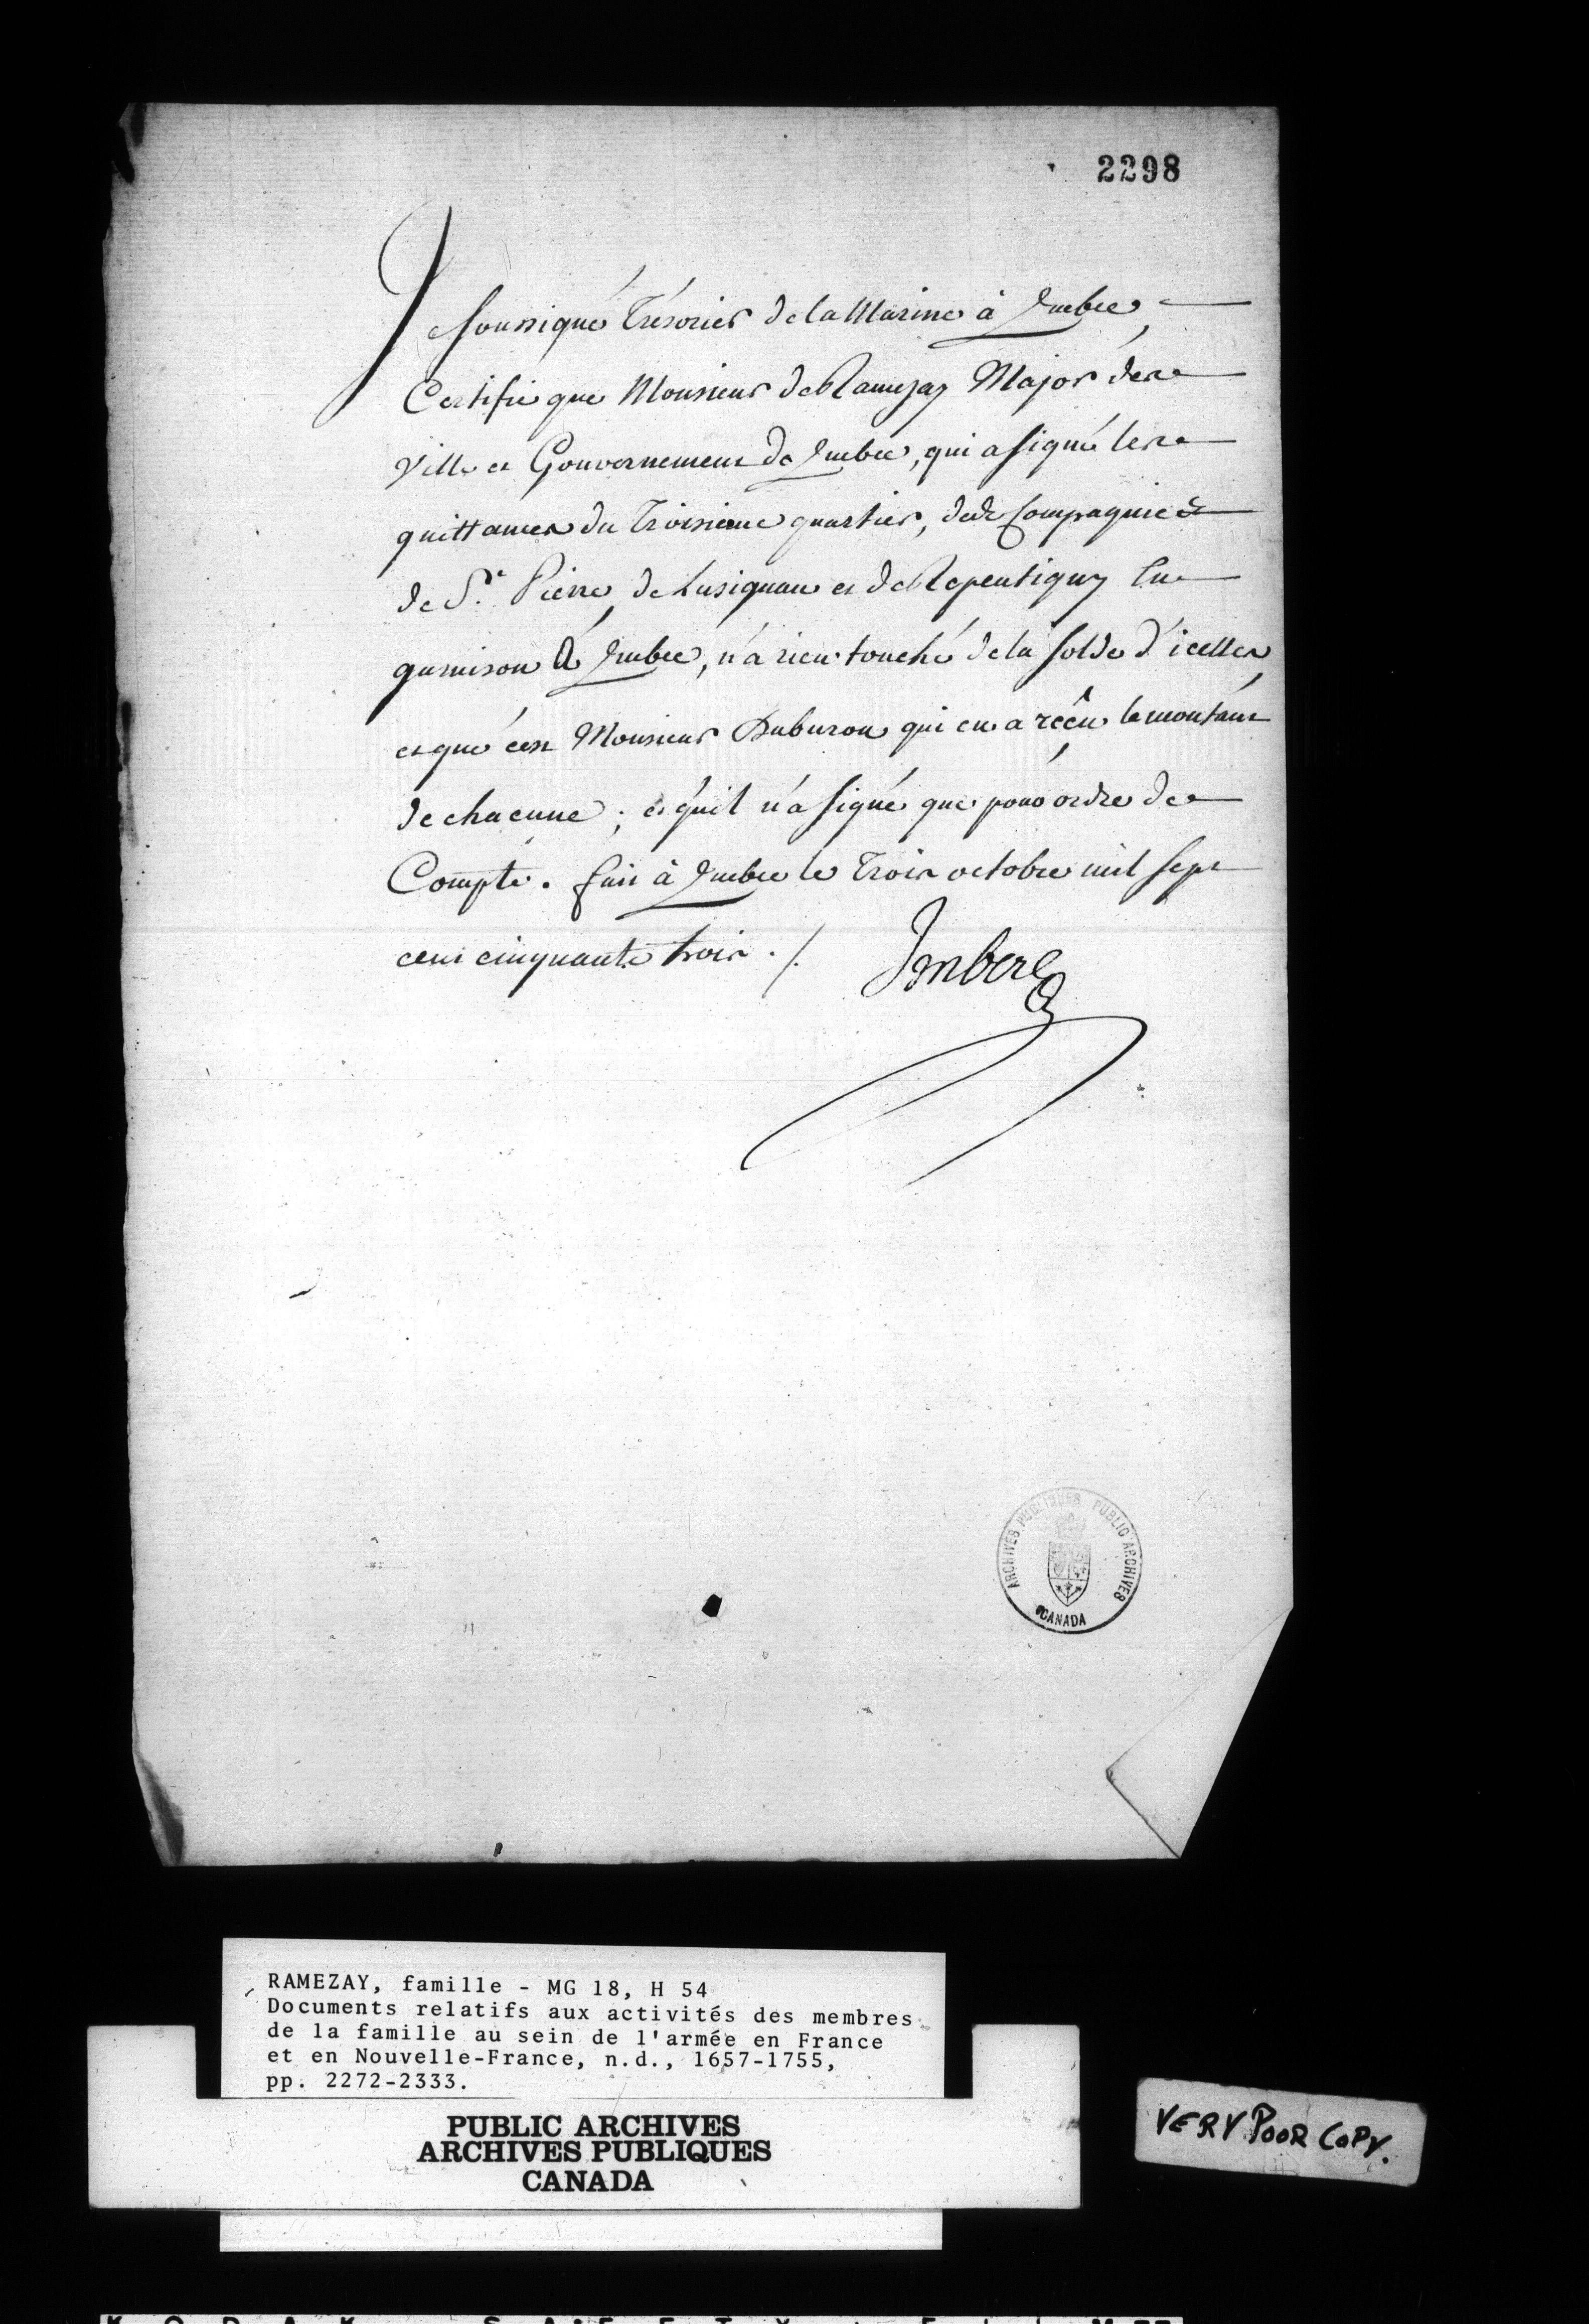 2298
Je soussigné Trésorier de la Marine à Quebec,
Certifie que Monsieur de Ramezay Major des
Ville et Gouvernement de Quebec, qui a signé les
quittances du Troisieme quartier, des Compagnies
de St. Pierre, de Lusignan et de Repentigny En
garnison à Quebec, n'a rien touché de la solde d'icelles,
et que c'est Monsieur Duburon qui en a réçû le montant
de chacune; et qu'il n'a signé que pour ordre de
Compte. fait à Quebec le Trois octobre mil sept
cent cinquante trois ./.
Imbert
ARCHIVES PUBLIQUES PUBLIC ARCHIVES
CANADA
RAMEZAY, famille - MG 18, H 54
Documents relatifs aux activités des membres
de la famille au sein de l'armée en France
et en Nouvelle-France, n.d., 1657-1755,
pp. 2272-2333.
PUBLIC ARCHIVES
ARCHIVES PUBLIQUES
CANADA
VERY POOR COPY.